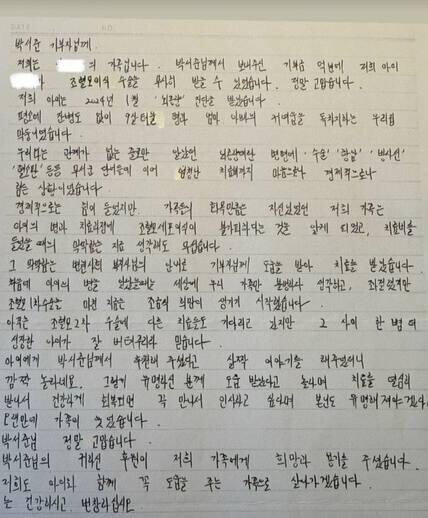 박서준 기부자님께.
저희는 의 가족입니다. 박서준님께서 보내주신 기부금 덕분에 저희 아이
가 조혈모이식 수술을 무사히 받을 수 있었습니다. 정말 고맙습니다.
저희 아이는 2024년 1월 '뇌종양' 진단을 받았습니다.
평소에 한번도 없이 엄마 아빠의 우리집
막둥이였습니다.
우리와는 관계가 없는 줄로만 알았던 뇌종양이란 병명에 '수술' '항암' '방사선'
등등 무서운 단어들이 이어 엄청난 치료비까지 마음으로나 경제적으로나
힘든 상황이었습니다.
경제적으로는 힘이 들었지만 가족들의 화목만큼은 자신있었던 저희 가족는
아이의 병과 치료과정에 조혈모세포이식이 불가피하다는 것을 알게 되었고, 치료비를
들었을 때의 막막함은 지금 생각해도 무섭습니다.
그 막막함는 병원사회 도움을 받아 치료를 받았습니다.
처음에 아이의 병을 알았을때는 세상에 우리 가족만 불행하다 생각하고, 좌절했지만
조혈모 1차수술을 마친 지금은 조금씩 희망이 생기기 시작했습니다.
아직은 조혈모 2차 수술에 다른 치료들도 기다리고 있지만 그 사이 한 뼘 더
성장한 아이가 잘 버텨주리라 믿습니다.
아이에게 박서준님께서 후원해 주셨다고 살짝 이야기를 해주었더니
깜짝 놀라네요. 그렇게 유명하신 분께 도움 받았다고 놀라며 치료를 열심히
받아서 건강하게 회복되면 꼭 만나서 인사하고 싶다며 본인도 유명해져야겠다
오랜만에 가족이 웃었습니다.
박서준님 정말 고맙습니다.
박서준님의 귀하신 후원이 저희 가족에게 희망과 용기를 주셨습니다.
저희도 아이와 함께 꼭 도움을 주는 가족으로 살아가겠습니다.
는 건강하시고 번창하십시오.